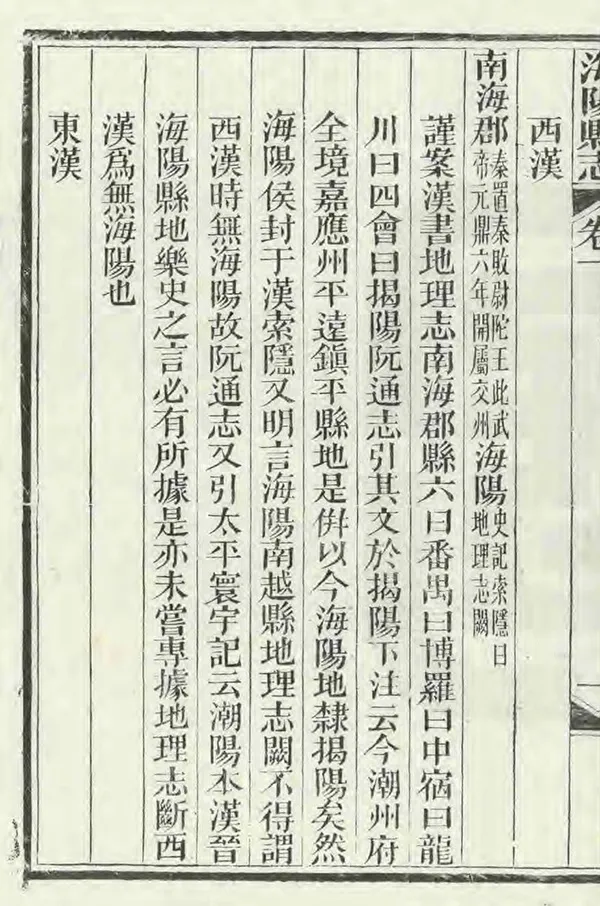 海陽縣志 卷一
西漢
南海郡秦置秦敗尉陀王此武帝元鼎六年開屬交州海陽史記索隱曰地理志闕
謹案漢書地理志南海郡縣六曰番禺曰博羅曰中宿曰龍
川曰四會曰揭陽阮通志引其文於揭陽下注云今潮州府
全境嘉應州平遠鎭平縣地是倂以今海陽地隸揭陽矣然
海陽侯封于漢索隱又明言海陽南越縣地理志闕不得謂
西漢時無海陽故阮通志又引太平寰宇記云潮陽本漢晉
海陽縣地樂史之言必有所據是亦未嘗專據地理志斷西
漢爲無海陽也
東漢